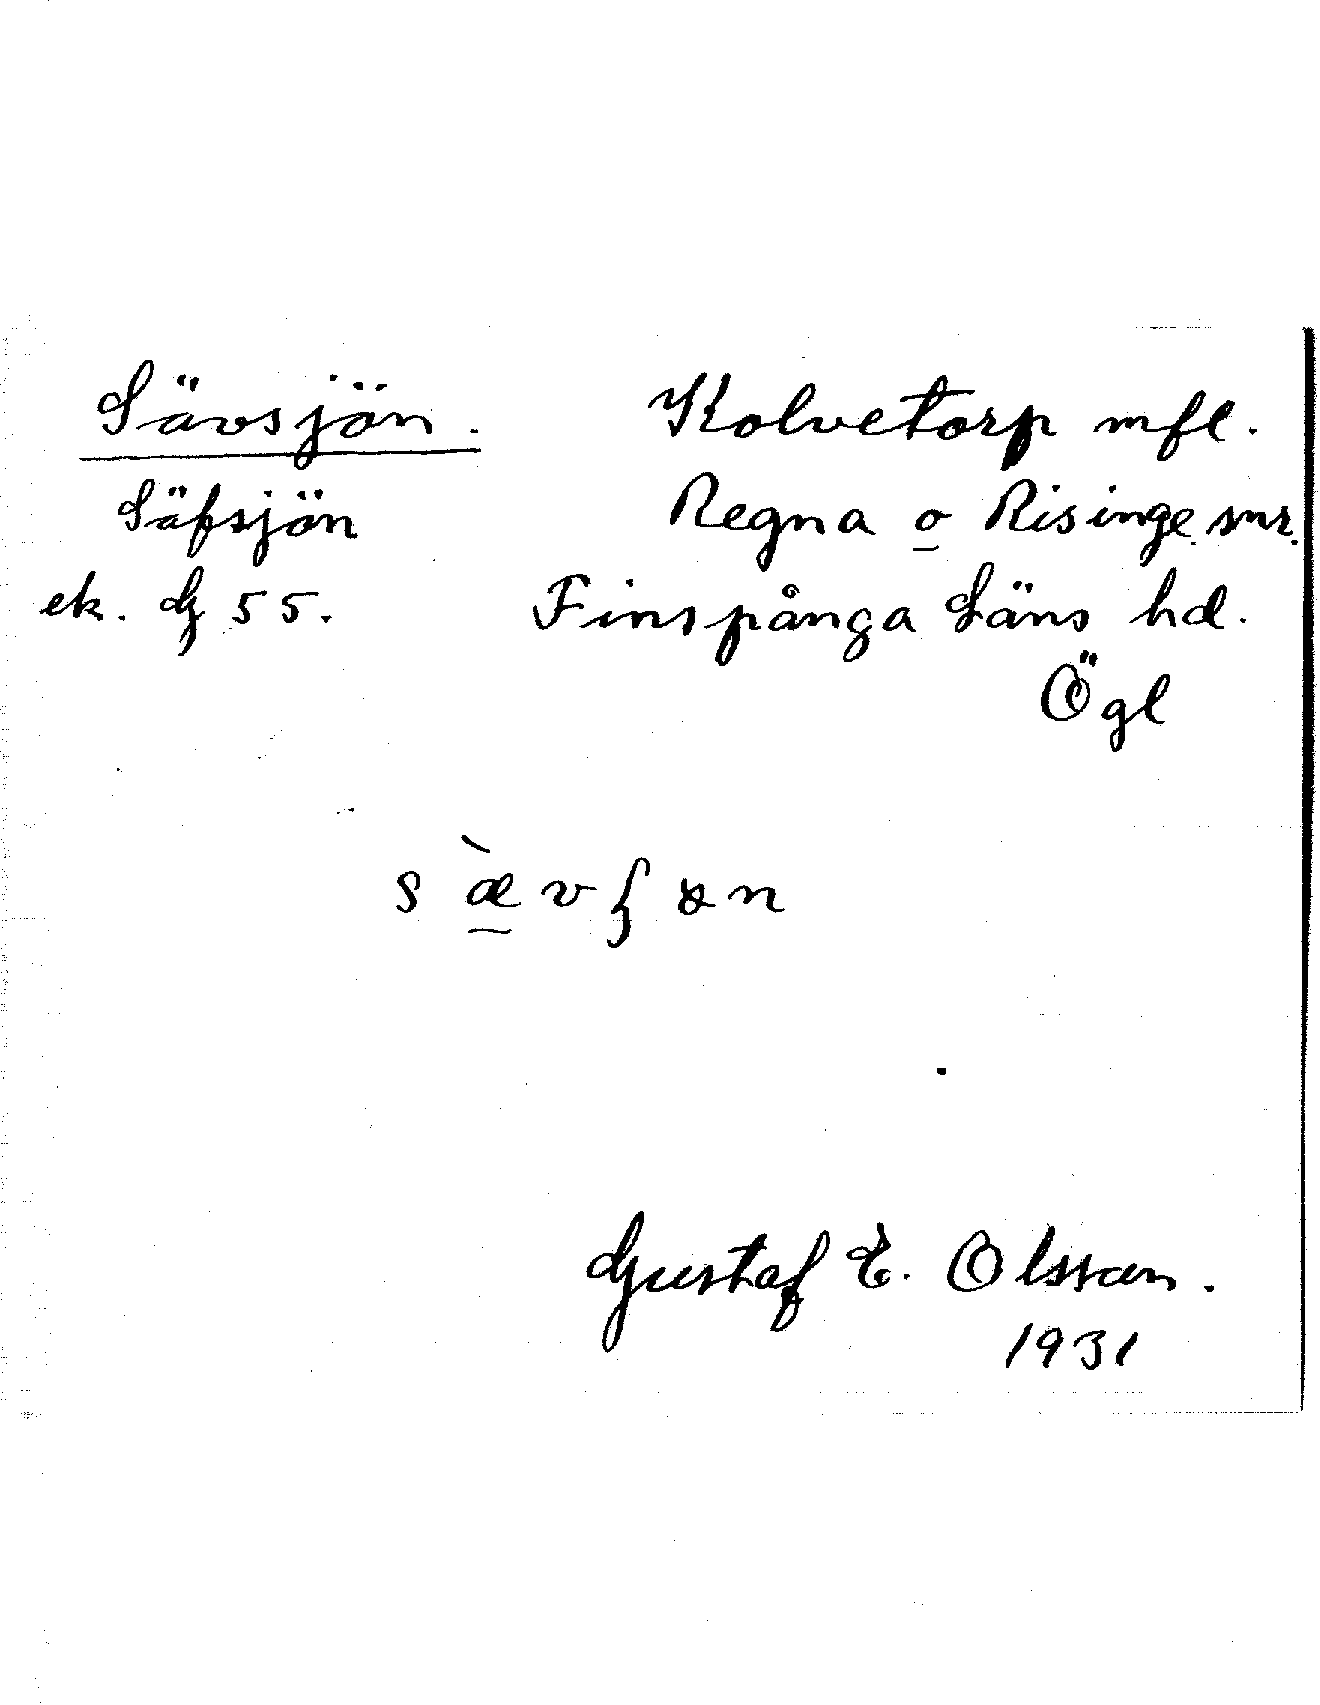 Sävsjön.
Säfsjön
ek. bg 55.
Kolvetorp mfl.
Regna o Risinge snr.
Finspånga Läns hd.
Ögl
Gustaf E. Olsson.
1931